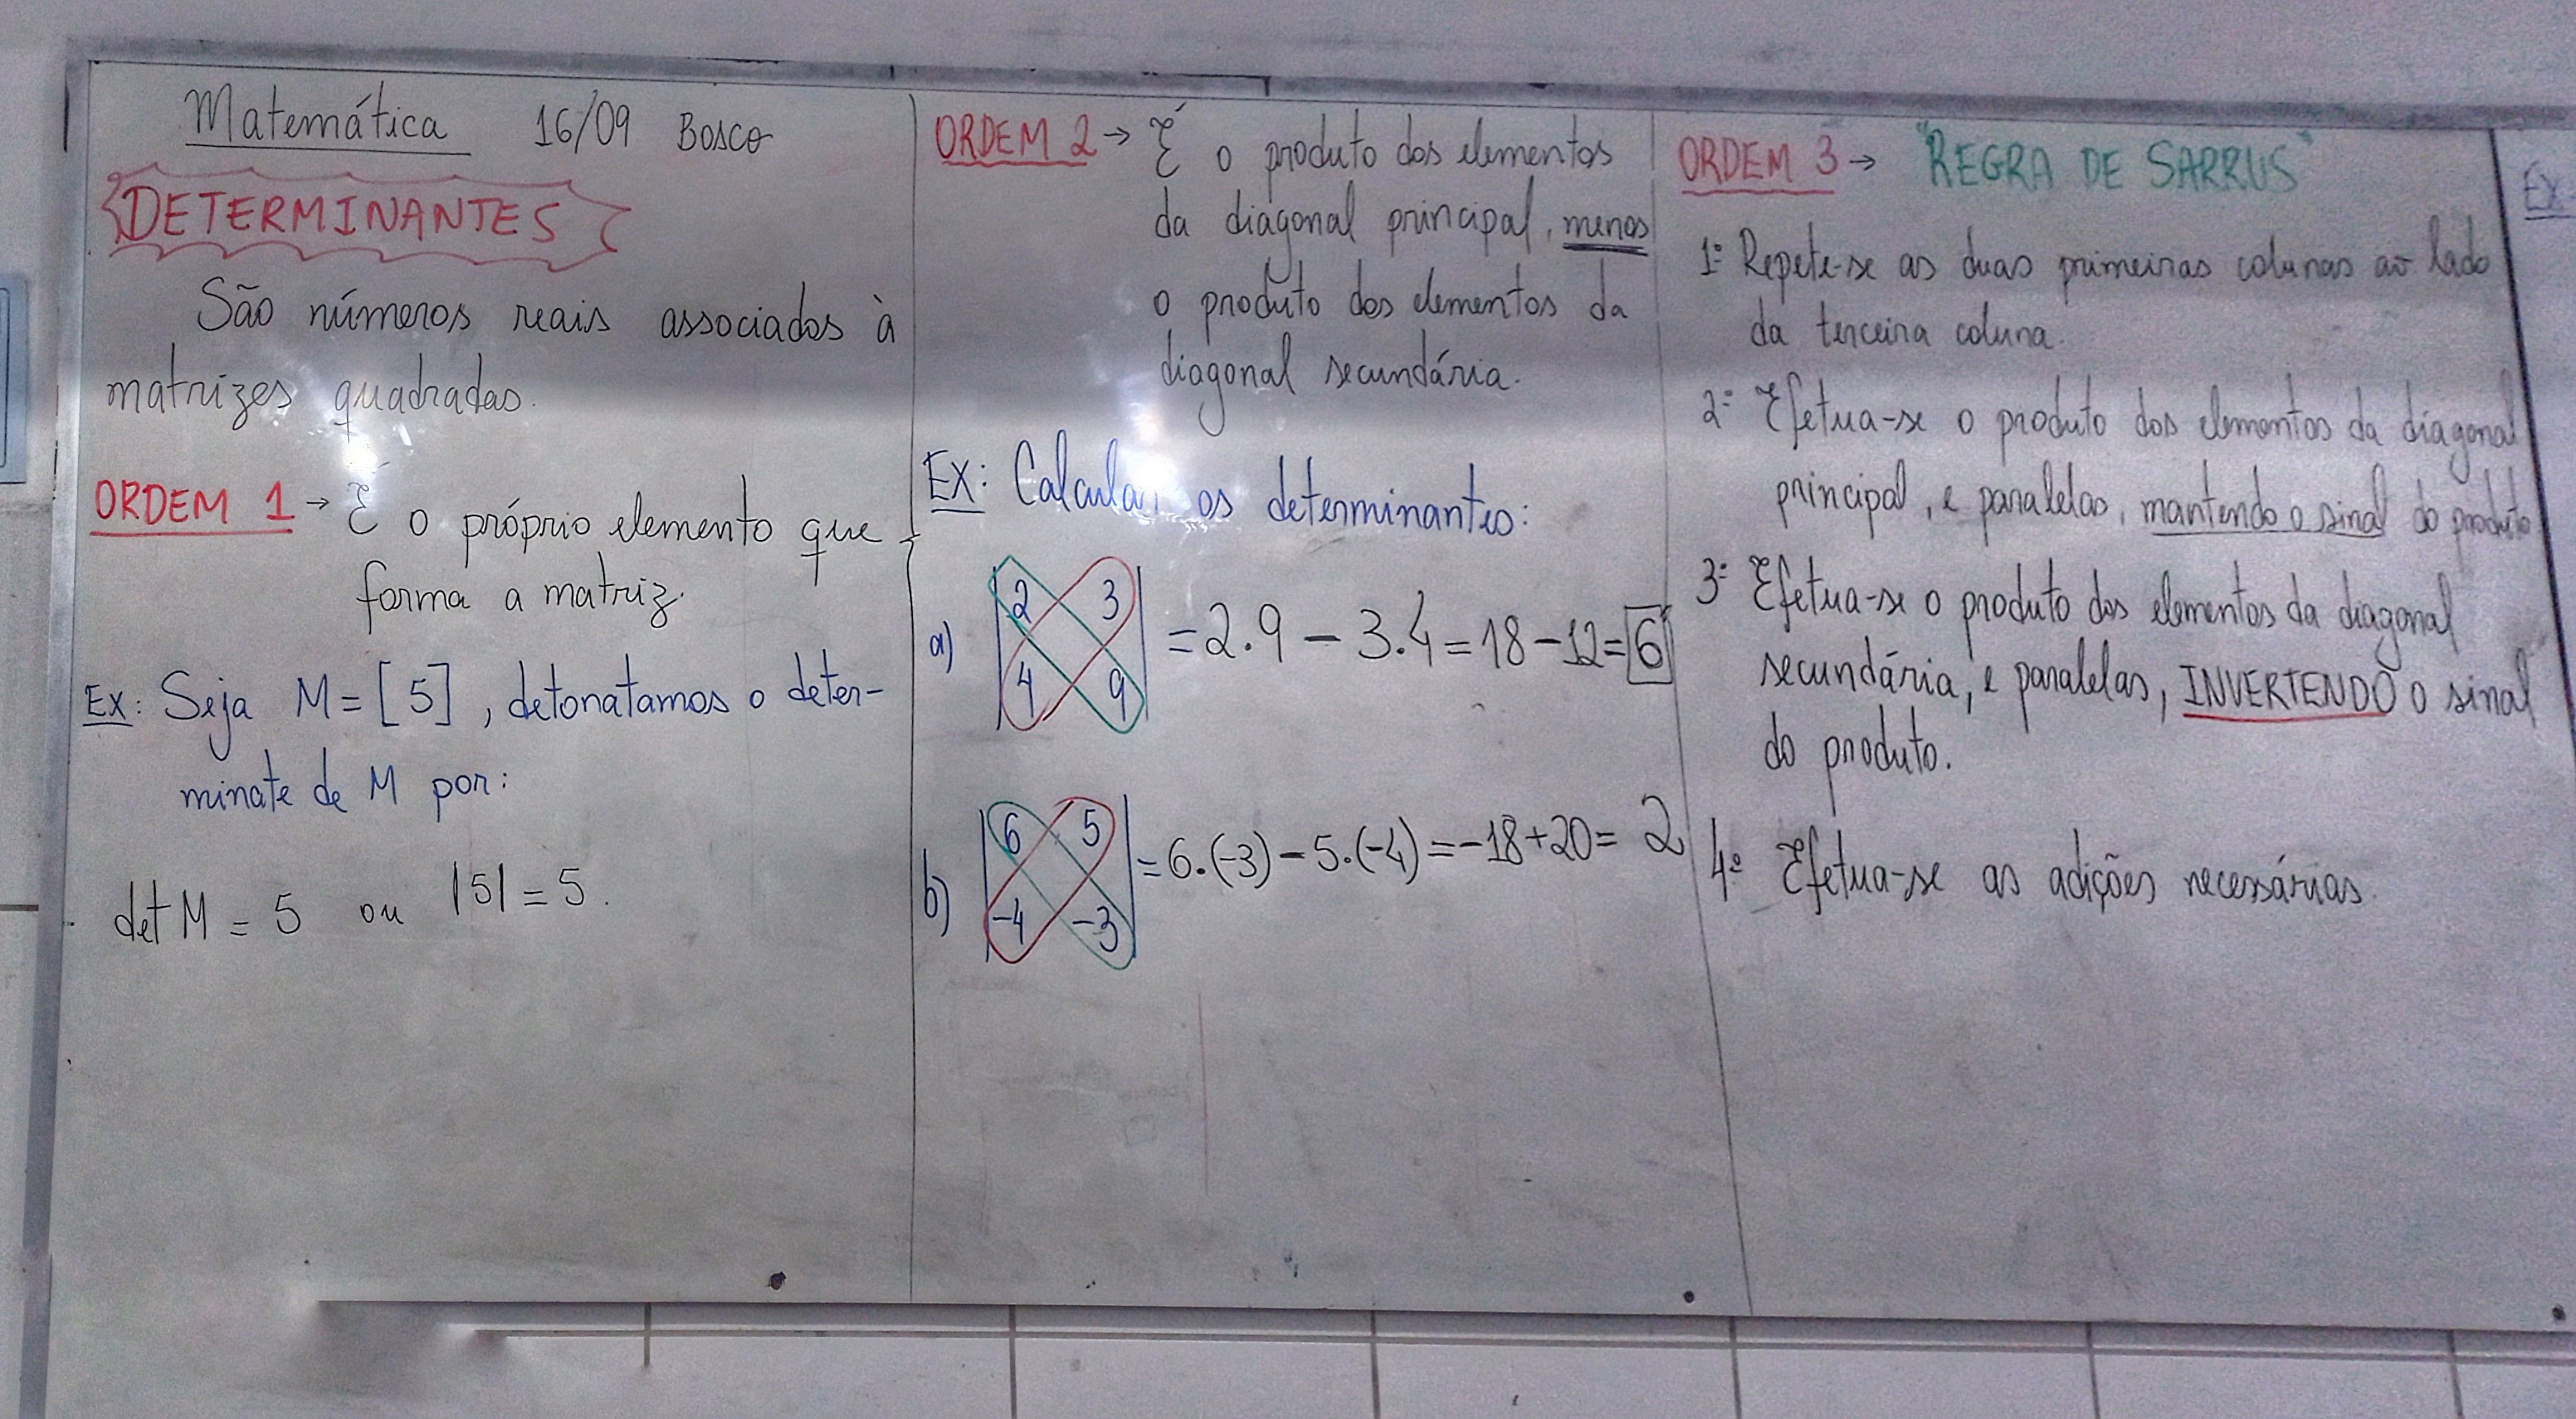 Matemática 16/09 Bosco
DETERMINANTES
São números reais associados à
matrizes quadradas.
ORDEM 1 → É o próprio elemento que
forma a matriz.
Ex: Seja M = [5], detonatamos o deter-
minate de M por:
det M = 5 ou |5| = 5.
ORDEM 2 → É o produto dos elementos
da diagonal principal, menos
o produto dos elementos da
diagonal secundária.
Ex: Calcular os determinantes:
a) |2 3| = 2.9 - 3.4 = 18 - 12 = 6
|4 9|
b) |6 5| = 6.(-3) - 5.(-4) = -18 + 20 = 2
|-4 -3|
ORDEM 3 → "REGRA DE SARRUS"
1º Repete-se as duas primeiras colunas ao lado
da terceira coluna.
2º Efetua-se o produto dos elementos da diagonal
principal, e paralelas, mantendo o sinal do produto
3º Efetua-se o produto dos elementos da diagonal
secundária, e paralelas, INVERTENDO o sinal
do produto.
4º Efetua-se as adições necessárias.
Ex